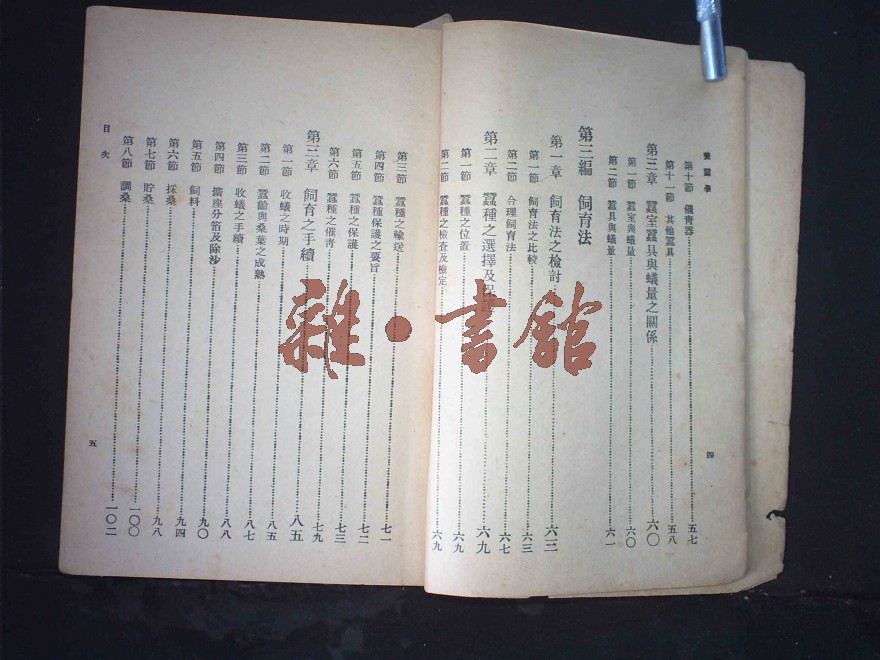 養蠶學
第十節　催青器……五七
第十一節　其他蠶具……五八
第三章　蠶室蠶具與蟻量之關係……六〇
第一節　蠶室與蟻量……六〇
第二節　蠶具與蟻量……六一
第三編　飼育法
第一章　飼育法之檢討……六三
第一節　飼育法之比較……六三
第二節　合理飼育法……六七
第二章　蠶種之選擇及保護……六九
第一節　蠶種之位置……六九
第二節　蠶種之檢查及檢定……六九
四
第三節　蠶種之輸送……七一
第四節　蠶種保護之要旨……七二
第五節　蠶種之保護……七三
第六節　蠶種之催青……七九
第三章　飼育之手續……八五
第一節　收蟻之時期……八五
第二節　蠶齡與桑葉之成熟……八七
第三節　收蟻之手續……八八
第四節　擴座分箔及除沙……九〇
第五節　飼料……九四
第六節　採桑……九八
第七節　貯桑……一〇〇
第八節　調桑……一〇二
目次
五
雜·書館